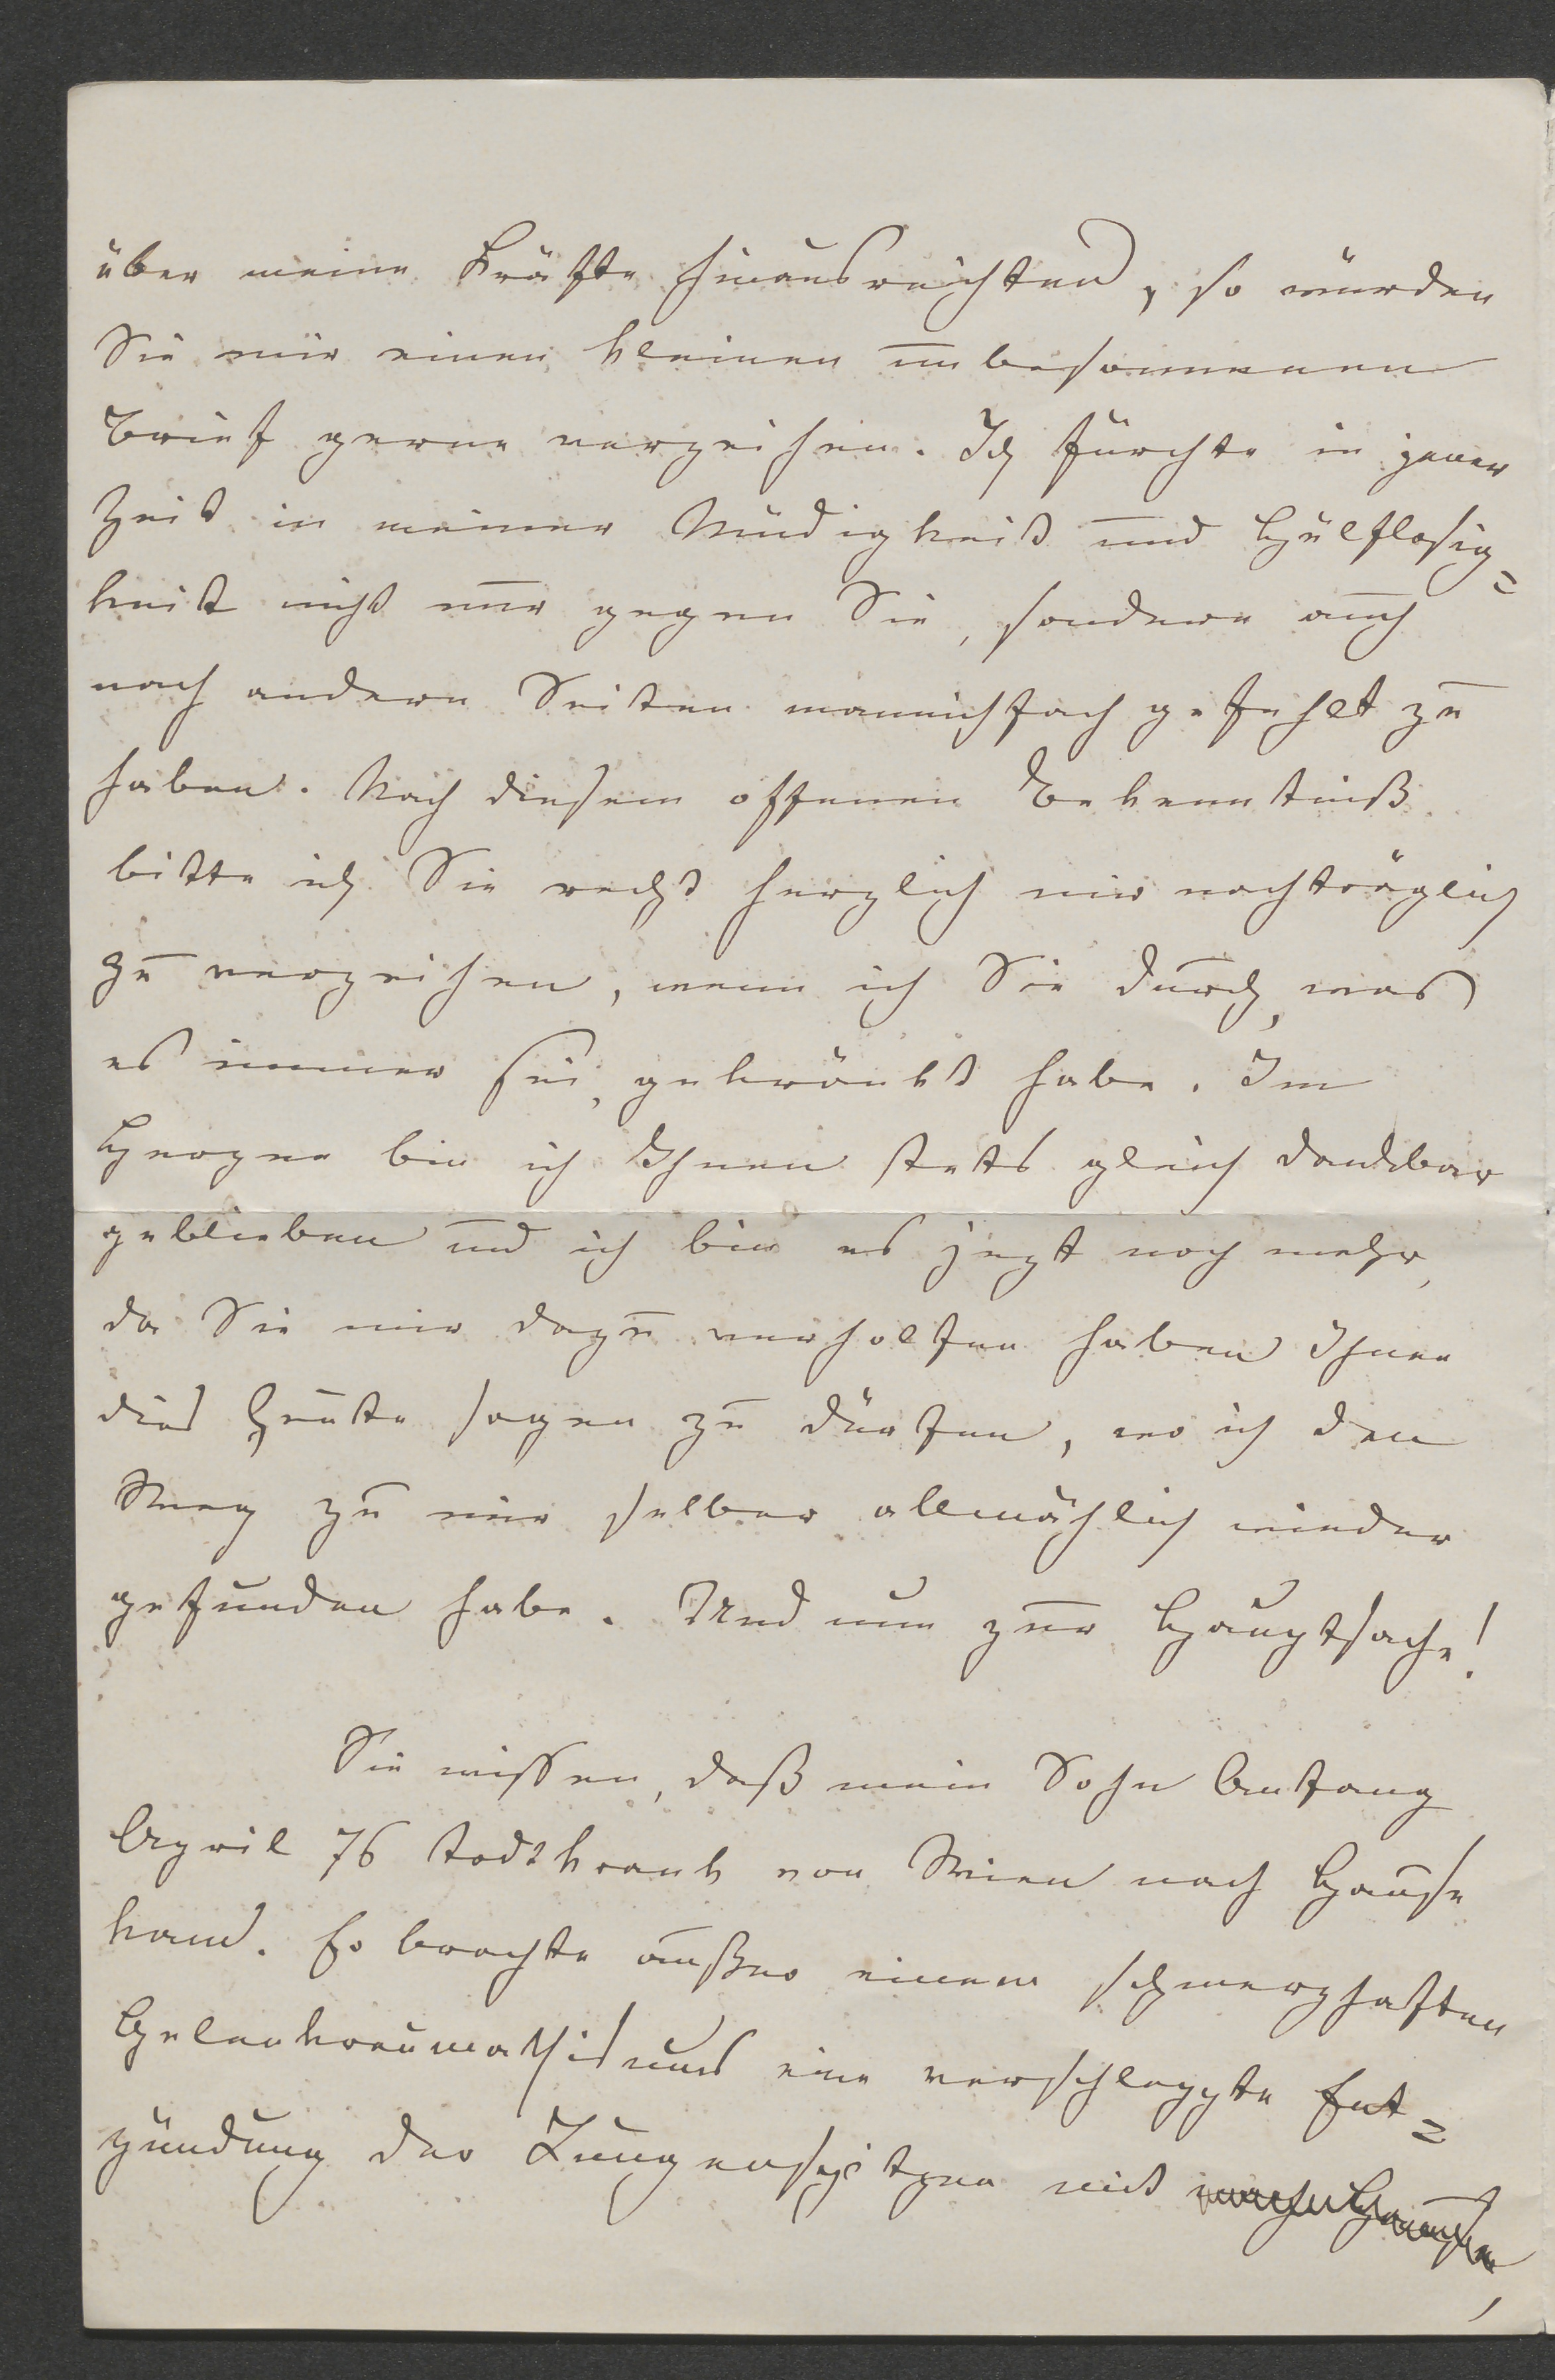 über meine Kräfte hinausreichten, so würden
Sie mir einen kleinen unbesonnenen
Brief gerne verzeihen. Ich fürchte in jener
Zeit in meiner Müdigkeit und Hülflosig=
keit nicht nur gegen Sie, sondern auch
nach andern Seiten mannichfach gefehlt zu
haben. Nach diesem offenen Bekenntniß
bitte ich Sie recht herzlich mir nachträglich
zu verzeihen, wenn ich Sie durch, was
es immer sei, gekränkt habe. Im
Herzen bin ich Ihnen stets gleich dankbar
geblieben und ich bin es jezt noch mehr,
da Sie mir dazu verholfen haben Ihnen
dies heute sagen zu dürfen, wo ich den
Weg zu mir selber allmählich wieder
gefunden habe. Und nun zur Hauptsache!
Sie wissen, daß mein Sohn Anfang
April 76 todtkrank von Wien nach Hause
kam. Er brachte außer einem schmerzhaften
Gelenkreumathismus eine verschleppte Ent=
zündung der Lungenspitzen mit nach Hause,